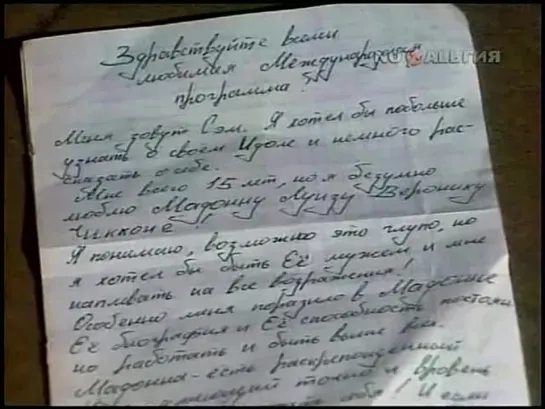 НОСТАЛЬГИЯ
Здравствуйте всеми
любимая Международная
программа!
Меня зовут Сэм. Я хотел бы побольше
узнать о своём Идоле и немного рас-
сказать о себе.
Мне всего 15 лет, но я безумно
люблю Мадонну Луизу Веронику
Чикконе!
Я понимаю, возможно это глупо, но
я хотел бы быть Её мужем и мне
наплевать на все возражения!
Особенно меня поразило в Мадонне
Её биография и Её способность постоян
но работать и быть выше
Мадонна - есть раскрепощённый
только и вровень
себя! И если